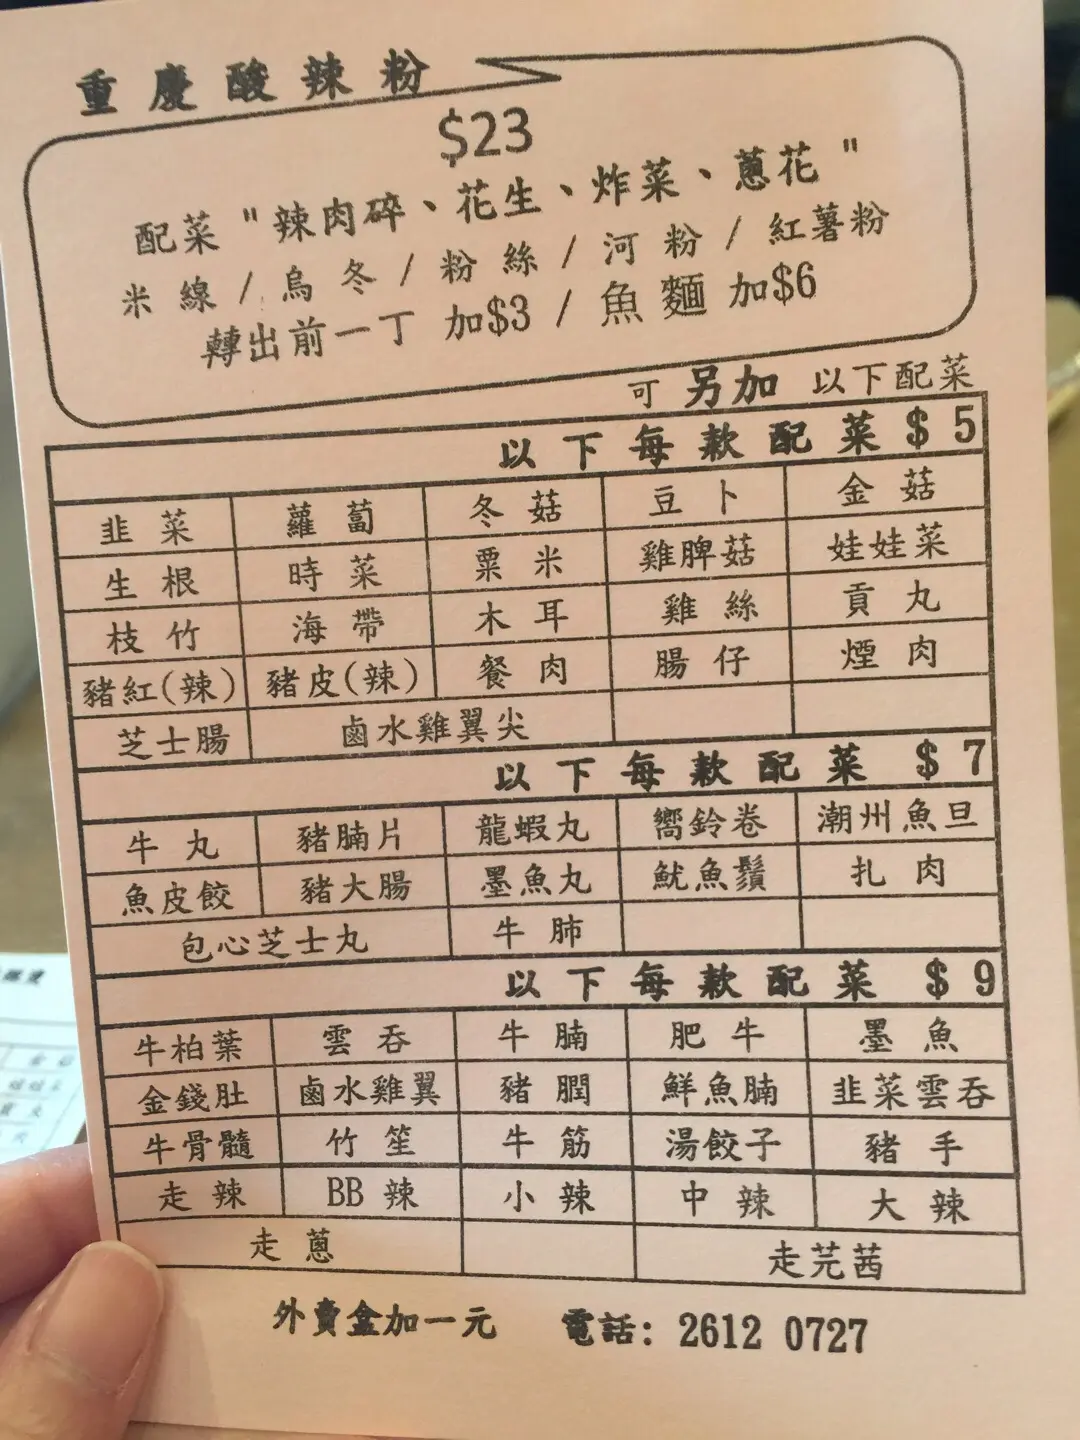 重慶酸辣粉
$23
配菜"辣肉碎、花生、炸菜、蔥花"
米線/烏冬/粉絲/河粉/紅薯粉
轉出前一丁 加$3/魚麵 加$6
可 另加 以下配菜
以下每款配菜$5
韭菜 蘿蔔 冬菇 豆卜 金菇
生根 時菜 粟米 雞脾菇 娃娃菜
枝竹 海帶 木耳 雞絲 貢丸
豬紅(辣) 豬皮(辣) 餐肉 腸仔 煙肉
芝士腸 鹵水雞翼尖
以下每款配菜 $7
牛丸 豬腩片 龍蝦丸 嚮鈴卷 潮州魚旦
魚皮餃 豬大腸 墨魚丸 魷魚鬚 扎肉
包心芝士丸 牛肺
以下每款配菜 $9
牛柏葉 雲吞 牛腩 肥牛 墨魚
金錢肚 鹵水雞翼 豬膶 鮮魚腩 韭菜雲吞
牛骨髓 竹笙 牛筋 湯餃子 豬手
走辣 BB辣 小辣 中辣 大辣
走蔥 走芫茜
外賣盒加一元 電話: 2612 0727